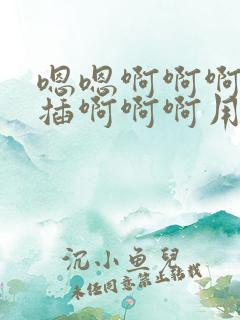 嗯嗯啊啊啊
插啊啊啊用
沉小鱼儿
未经同意禁止转载